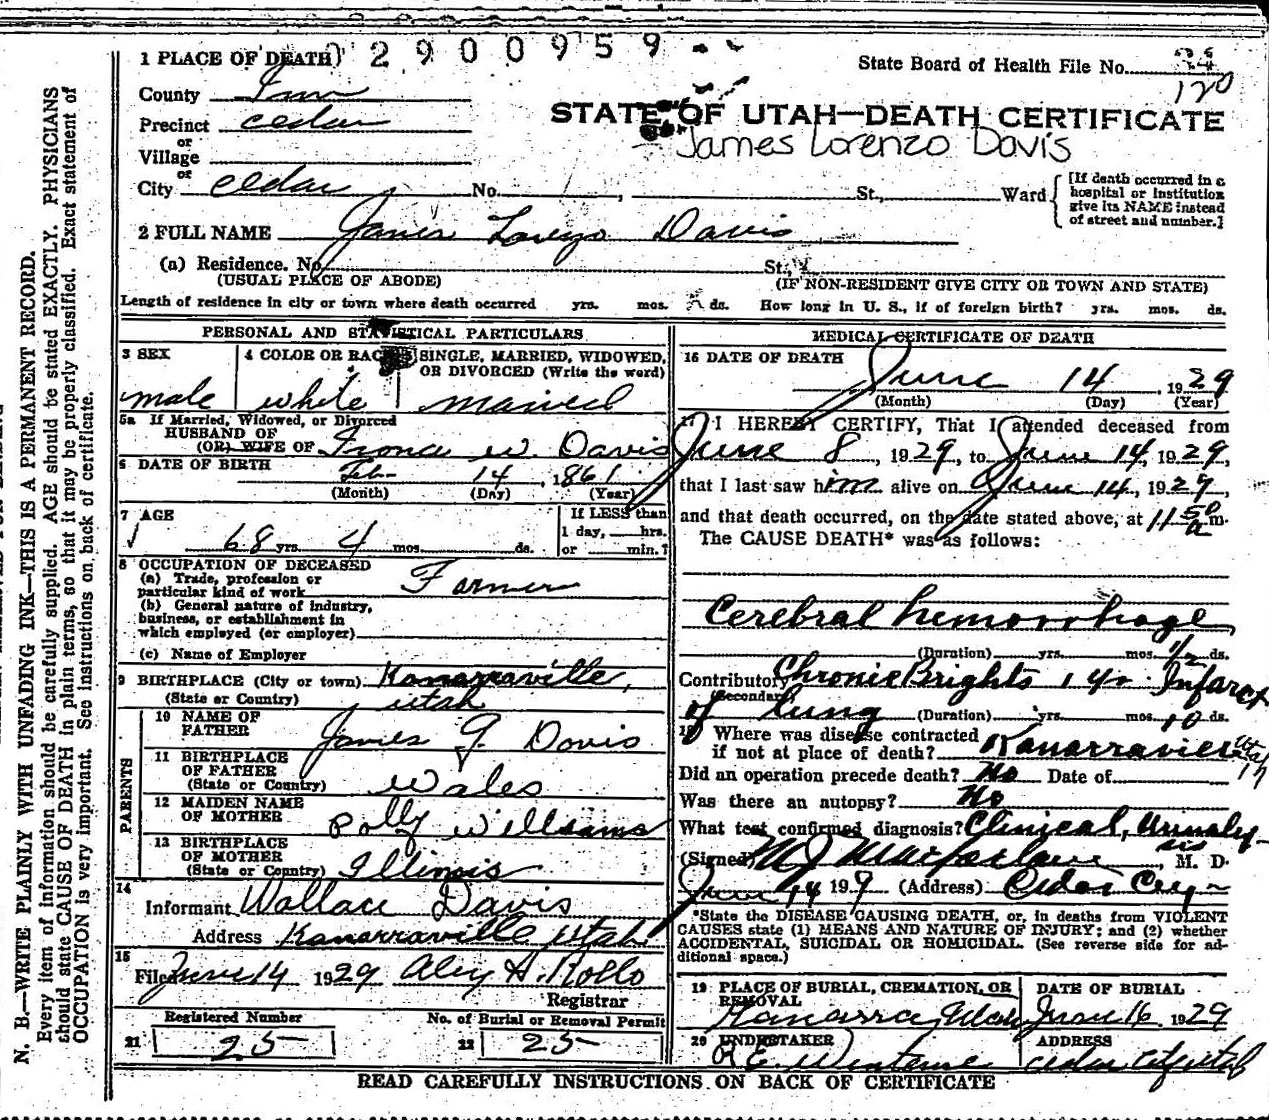 2900959
1 PLACE OF DEATH
State Board of Health File No.
120
County Iron
STATE OF UTAH—DEATH CERTIFICATE
Precinct cedar
James Lorenzo Davis
or
Village
or
City cedar No. St., Ward
[If death occurred in a
hospital or institution
give its NAME instead
of street and number.]
2 FULL NAME James Lorenzo Davis
(a) Residence. No. St.,
(USUAL PLACE OF ABODE) (IF NON-RESIDENT GIVE CITY OR TOWN AND STATE)
Length of residence in city or town where death occurred yrs. mos. ds. How long in U. S., if of foreign birth? yrs. mos. ds.
PERSONAL AND STATISTICAL PARTICULARS
3 SEX
male
4 COLOR OR RACE
white
5 SINGLE, MARRIED, WIDOWED,
OR DIVORCED (Write the word)
married
5a If Married, Widowed, or Divorced
HUSBAND OF
(OR) WIFE OF W. Davis
6 DATE OF BIRTH Feb 14, 1861
(Month) (Day) (Year)
7 AGE
68 yrs. 4 mos. ds.
If LESS than
1 day, hrs.
or min.?
8 OCCUPATION OF DECEASED
(a) Trade, profession or
particular kind of work Farmer
(b) General nature of industry,
business, or establishment in
which employed (or employer)
(c) Name of Employer
9 BIRTHPLACE (City or town) Kanarraville,
(State or Country) Utah
PARENTS
10 NAME OF
FATHER James J. Davis
11 BIRTHPLACE
OF FATHER
(State or Country) Wales
12 MAIDEN NAME
OF MOTHER Polly Williams
13 BIRTHPLACE
OF MOTHER
(State or Country) Illinois
14
Informant Wallace Davis
Address Kanarraville Utah
15
Filed June 14 1929 H. Rollo
Registrar
Registered Number
21 25
No. of Burial or Removal Permit
22 25
MEDICAL CERTIFICATE OF DEATH
16 DATE OF DEATH
June 14, 1929
(Month) (Day) (Year)
17 I HEREBY CERTIFY, That I attended deceased from
June 8, 1929, to June 14, 1929,
that I last saw him alive on June 14, 1929,
and that death occurred, on the date stated above, at 11 50 a m.
The CAUSE DEATH* was as follows:
Cerebral hemorrhage
(Duration) yrs. mos. 1/2 ds.
Contributory Chronic Brights 1 yr Infarct
(Secondary)
of lung (Duration) yrs. mos. 10 ds.
18 Where was disease contracted
if not at place of death? Kanarraville Utah
Did an operation precede death? No Date of
Was there an autopsy? No
What test confirmed diagnosis? Clinical, Urinaly-
sis
(Signed) M J Macfarlane, M. D.
June 14 1929 (Address) Cedar City
*State the DISEASE CAUSING DEATH, or, in deaths from VIOLENT
CAUSES state (1) MEANS AND NATURE OF INJURY; and (2) whether
ACCIDENTAL, SUICIDAL OR HOMICIDAL. (See reverse side for ad-
ditional space.)
19 PLACE OF BURIAL, CREMATION, OR
REMOVAL
Kanarra, Utah
DATE OF BURIAL
June 16, 1929
20 UNDERTAKER
ADDRESS
cedar city utah
READ CAREFULLY INSTRUCTIONS ON BACK OF CERTIFICATE
N. B.—WRITE PLAINLY WITH UNFADING INK—THIS IS A PERMANENT RECORD.
Every item of information should be carefully supplied. AGE should be stated EXACTLY. PHYSICIANS
should state CAUSE OF DEATH in plain terms, so that it may be properly classified. Exact statement of
OCCUPATION is very important. See instructions on back of certificate.